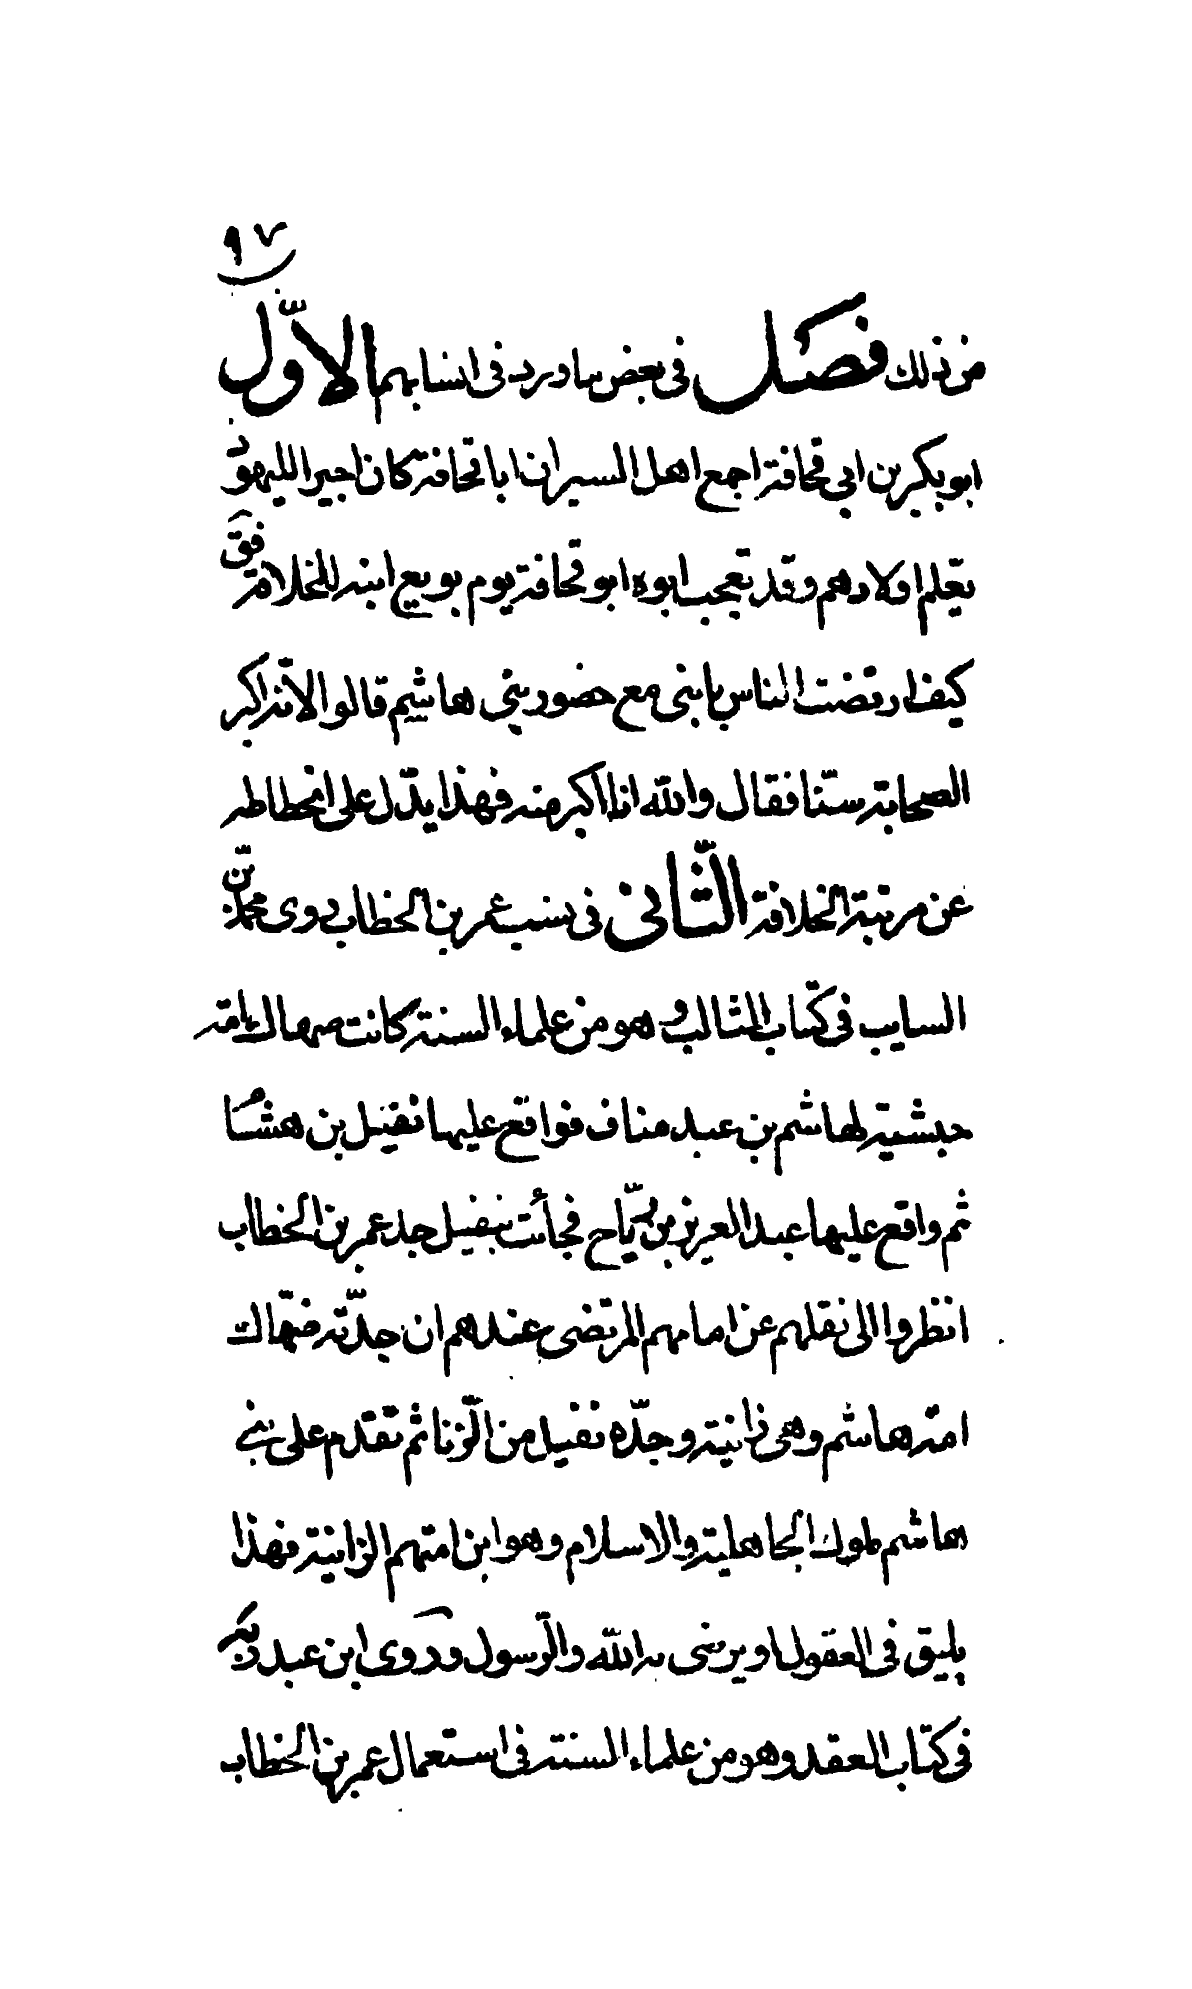 ٩٧
من ذلك فصل فى بعض ما ورد فى انسابهم الاوّل
ابو بكر بن ابي قحافة اجمع اهل السير ان ابا قحافة كان اجيرا لليهود
يعلم اولادهم وقد تعجب ابوه ابو قحافة يوم بويع ابنه للخلافة فق
كيف ارتضت الناس بابنى مع حضور بنى هاشم قالوا لانه اكبر
الصحابة سنّا فقال والله انا اكبر منه فهذا يدّل على انحطاطه
عن مرتبة الخلافة الثّانى فى نسب عمر بن الخطاب روى محمد بن
السايب فى كتاب المثالب وهو من علماء السنة كانت صهاك امة
حبشية لهاشم بن عبد مناف فواقع عليها نفيل بن هشام
ثم واقع عليها عبد العزيز بن رياح فجائت بنفيل جد عمر بن الخطاب
انظروا الى نقلهم عن امامهم المرتضى عندهم ان جدّته صهاك
امة هاشم وهى زانية وجدّه نفيل من الزّنا ثم تقدم على بنى
هاشم ملوك الجاهلية والاسلام وهو ابن امتهم الزانية فهذا
يليق فى العقول او يرضى به الله والرّسول وروى ابن عبد ربه
فى كتاب العقد وهو من علماء السنة فى استعمال عمر بن الخطاب